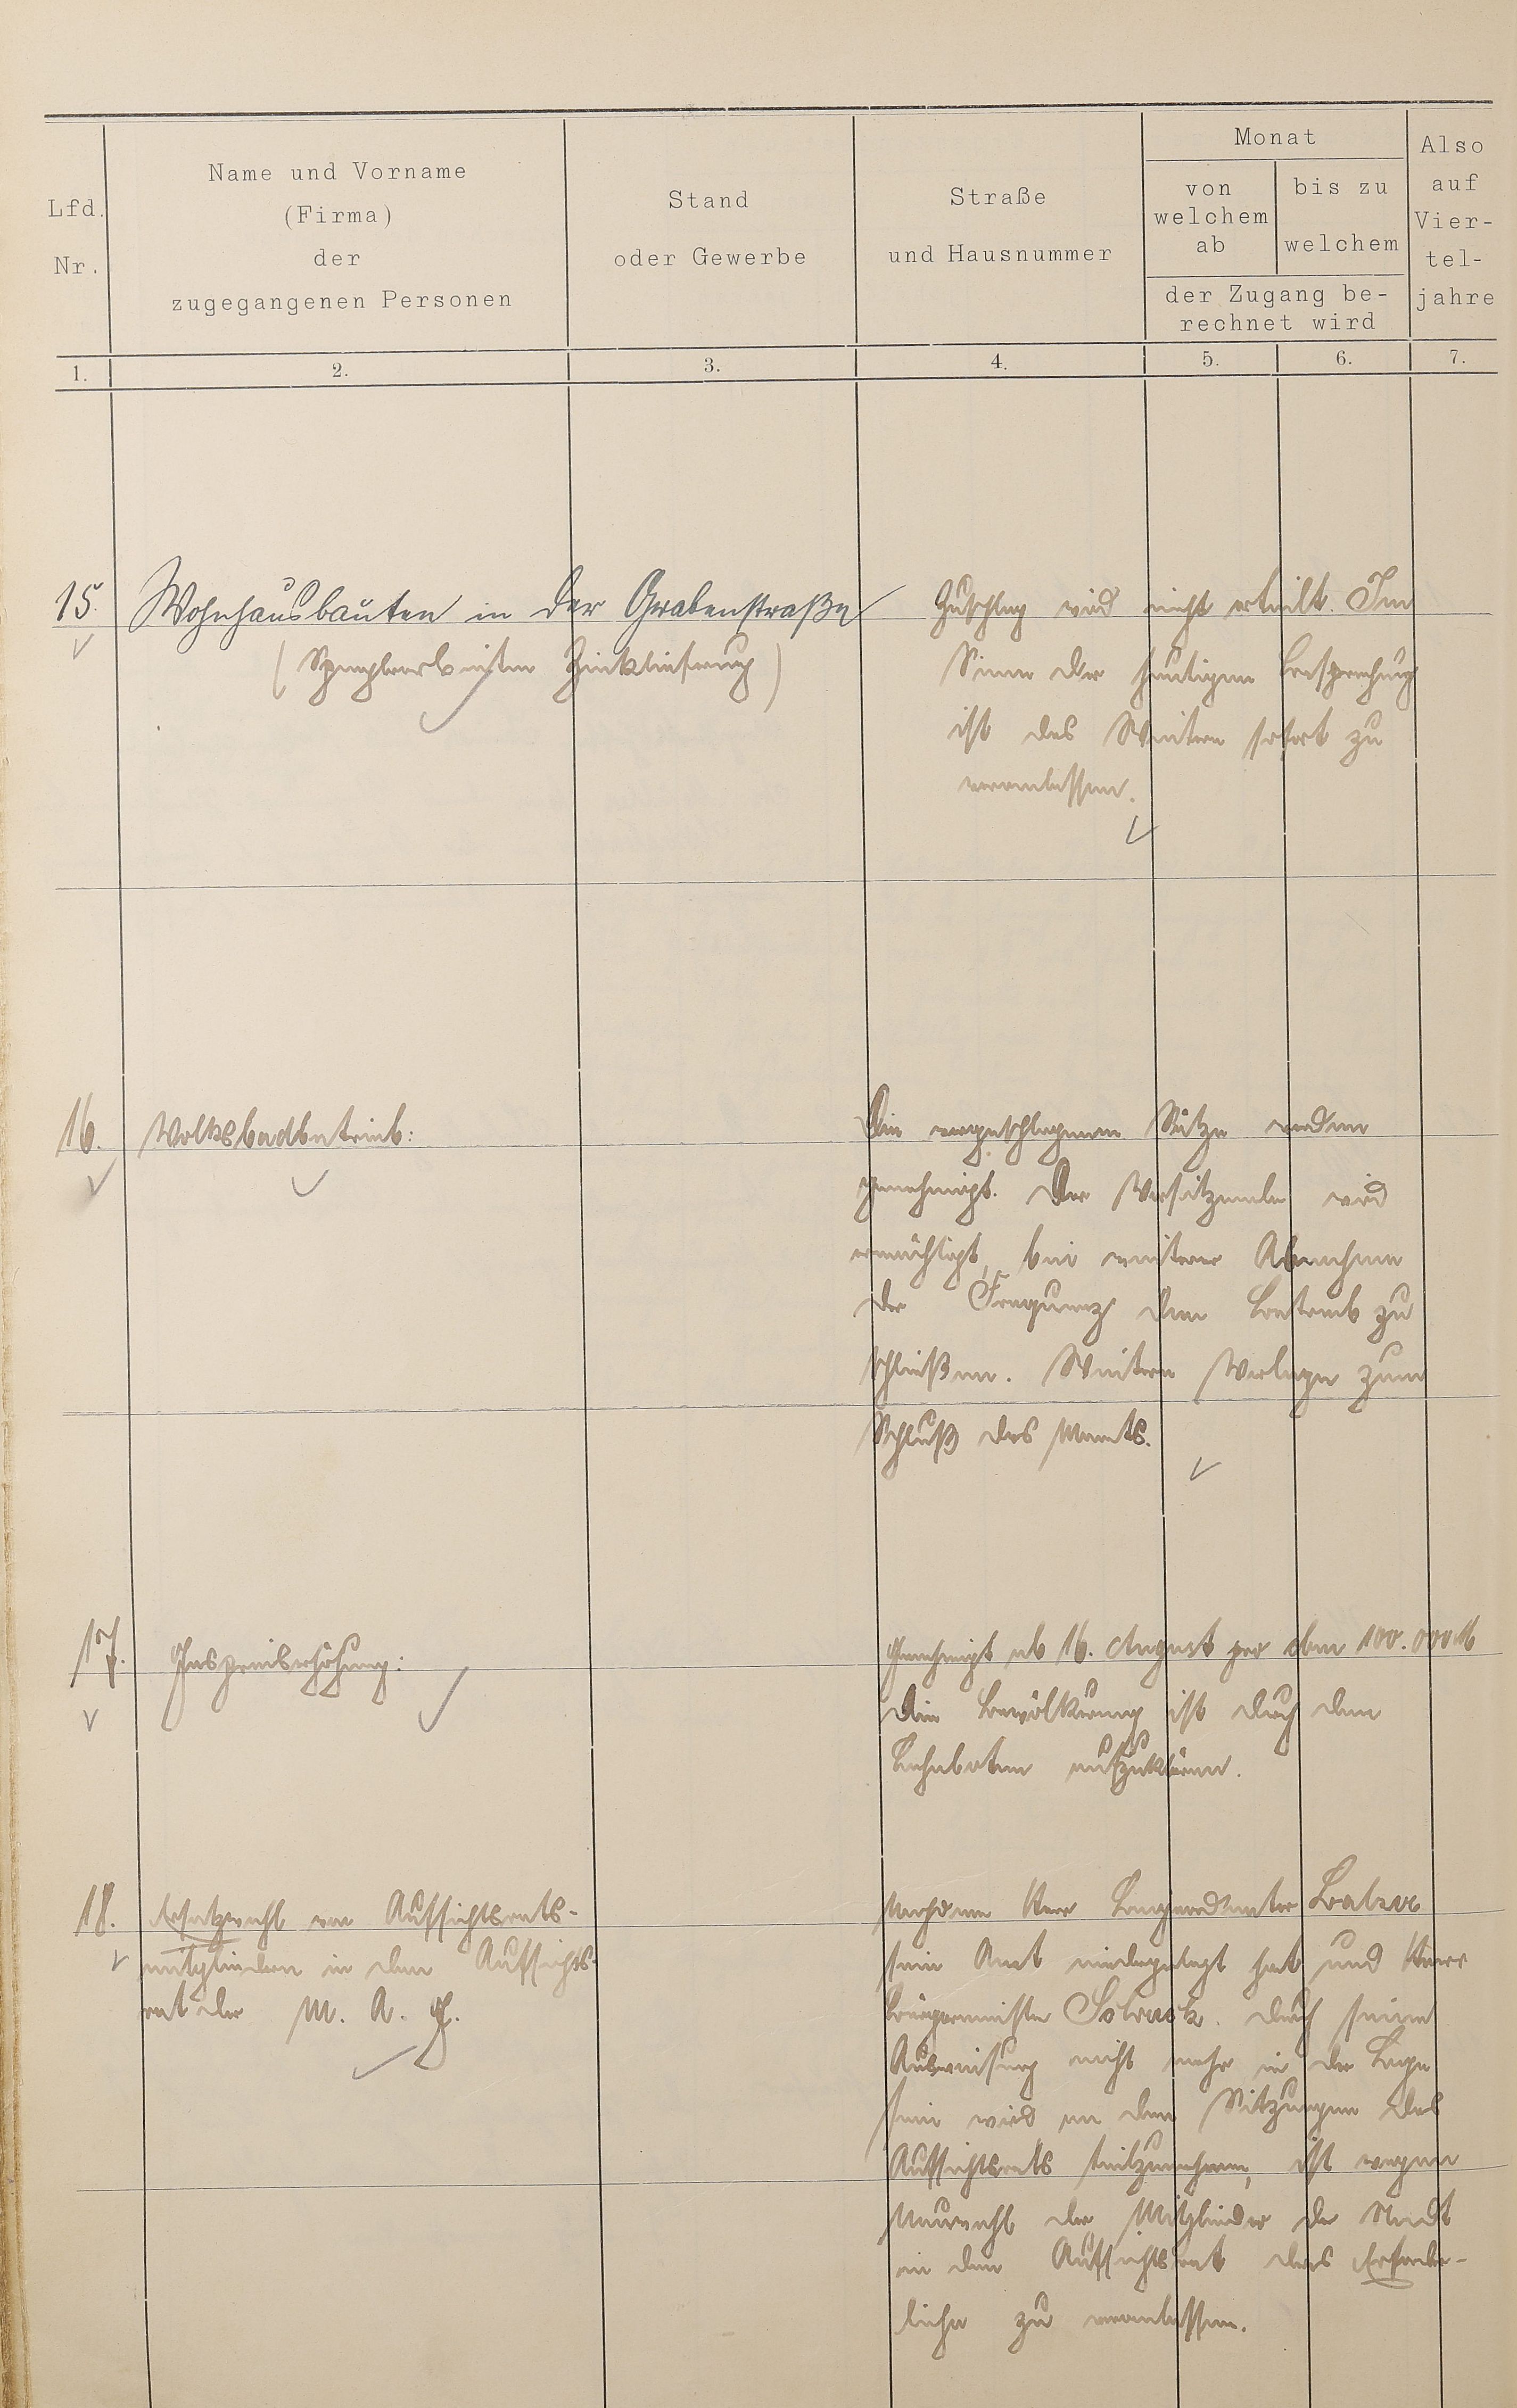 Lfd. Nr.
Name und Vorname
(Firma)
der
zugegangenen Personen
Stand
oder Gewerbe
Straße
und Hausnummer
Monat
von
welchem
ab
bis zu
welchem
der Zugang be-
rechnet wird
Also
auf
Vier-
tel-
jahre
1. 2. 3. 4. 5. 6. 7.
15. Wohnhausbauten in der Grabenstraße
(Spenglerarbeiten Zinklieferung)
Zuschlag wird nicht erteilt. Im
Sinne der heutigen Besprechung
ist das Weitere sofort zu
veranlassen.
16. Volksbadbetrieb:
Die vorgeschlagenen Sätze werden
genehmigt. Der Vorsitzende wird
ermächtigt, bei weiterer Abnahme
der Frequenz den Betrieb zu
schließen. Weitere Vorlage zum
Schluß des Monats.
17. Gaspreiserhöhung:
Genehmigt ab 16. August pro cbm 100.000 M
Die Bevölkerung ist durch den
aufzuklären.
18. Ersatzwahl von Aufsichtsrats-
mitgliedern in den Aufsichts-
rat der M. A. G.
Nachdem Herr
sein Amt niedergelegt hat und Herr
Bürgermeister durch seine
Ausweisung nicht mehr in der Lage
sein wird an den Sitzungen des
Aufsichtsrats teilzunehmen, ist wegen
Neuwahl der Mitglieder der Stadt
in den Aufsichtsrat das Erforder-
liche zu veranlassen.